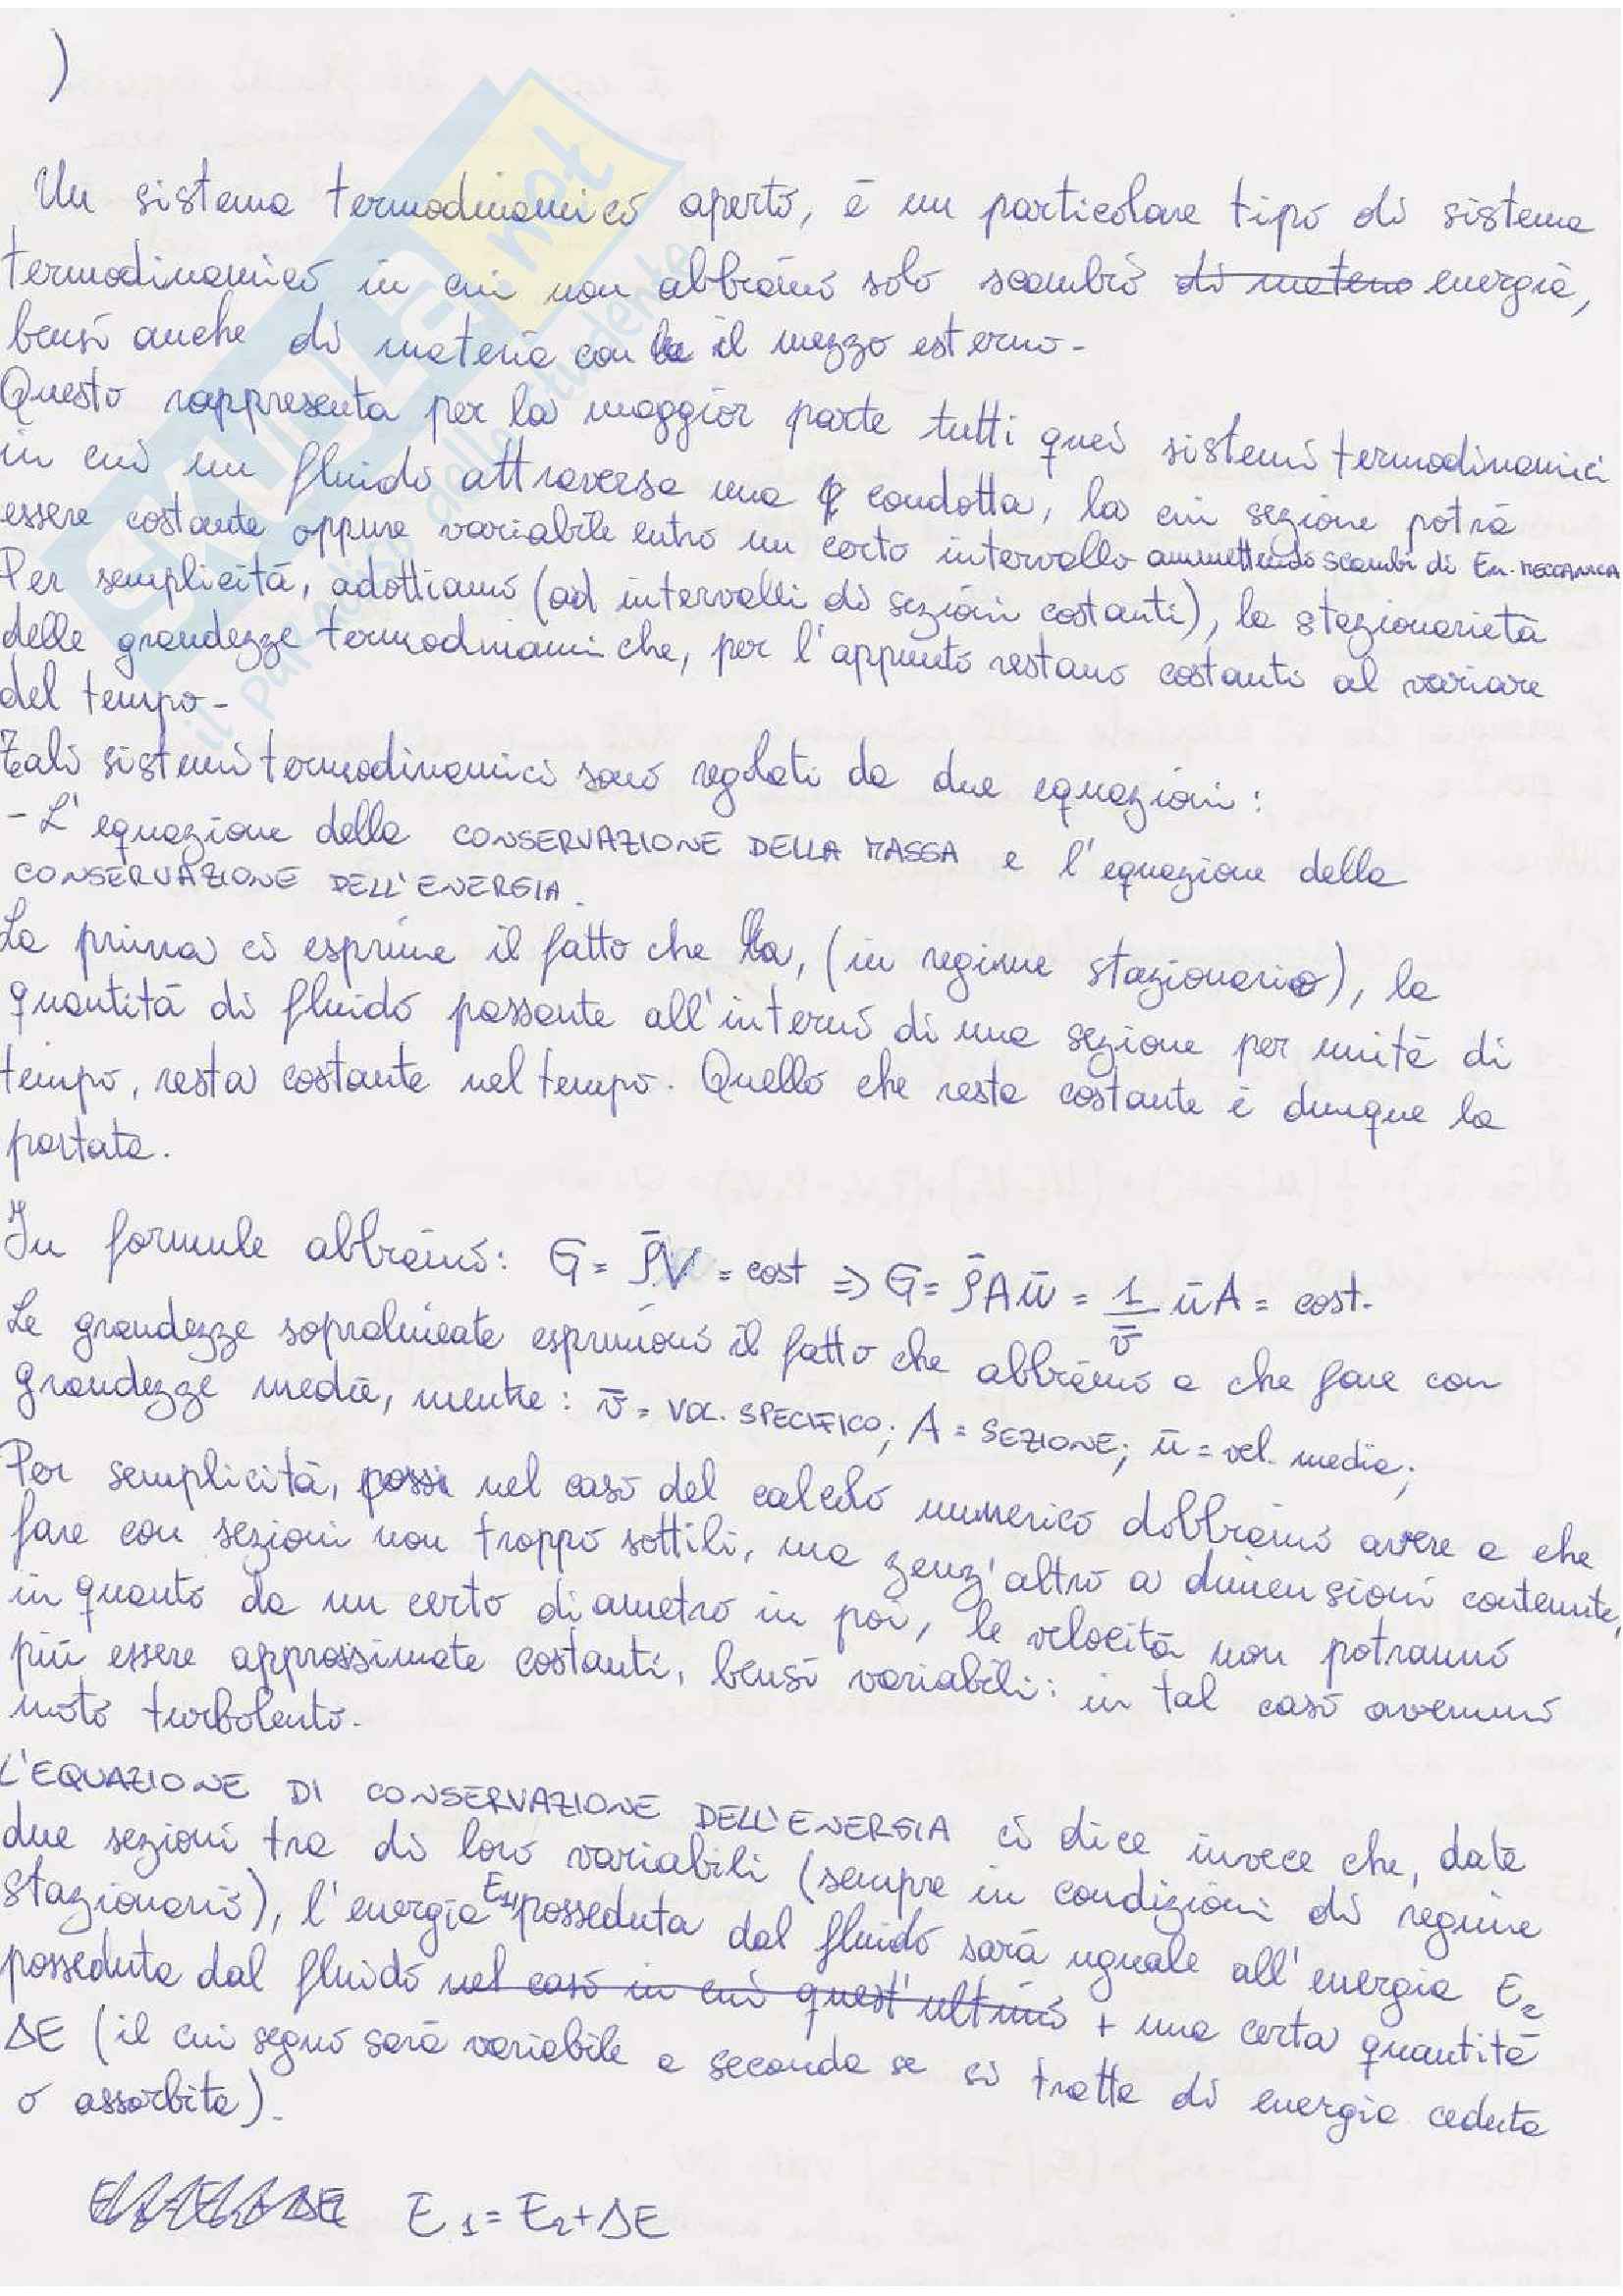 )
Un sistema termodinamico aperto, è un particolare tipo di sistema
termodinamico in cui non abbiamo solo scambio di materia energia,
bensì anche di materia con la il mezzo esterno-
Questo rappresenta per la maggior parte tutti quei sistemi termodinamici
in cui un fluido attraversa una condotta, la cui sezione potrà
essere costante oppure variabile entro un certo intervallo ammettendo scambi di En. MECCANICA
Per semplicità, adottiamo (ad intervalli di sezioni costanti), la stazionarietà
delle grandezze termodinamiche, per l'appunto restano costanti al variare
del tempo-
Tali sistemi termodinamici sono regolati da due equazioni:
- L'equazione della CONSERVAZIONE DELLA MASSA e l'equazione della
CONSERVAZIONE DELL'ENERGIA.
La prima ci esprime il fatto che la, (in regime stazionario), la
quantità di fluido passante all'interno di una sezione per unità di
tempo, resta costante nel tempo. Quello che resta costante è dunque la
portata.
In formule abbiamo: G = ρ̄V = cost => G = ρ̄Aū = 1/v̄ ūA = cost.
Le grandezze sopralineate esprimono il fatto che abbiamo a che fare con
grandezze medie, mentre: v̄ = VOL. SPECIFICO; A = SEZIONE; ū = vel. media;
Per semplicità, possi nel caso del calcolo numerico dobbiamo avere a che
fare con sezioni non troppo sottili, ma senz'altro a dimensioni contenute,
in quanto da un certo diametro in poi, le velocità non potranno
più essere approssimate costanti, bensì variabili: in tal caso avremmo
moto turbolento-
L'EQUAZIONE DI CONSERVAZIONE DELL'ENERGIA ci dice invece che, date
due sezioni tra di loro variabili (sempre in condizioni di regime
stazionario), l'energia E1, posseduta dal fluido sarà uguale all'energia E2
posseduta dal fluido nel caso in cui quest'ultimo + una certa quantità
ΔE (il cui segno sarà variabile a seconda se si tratta di energia ceduta
o assorbita)-
E1 = E2 + ΔE
SKUOLA.not
il paradiso dello studente